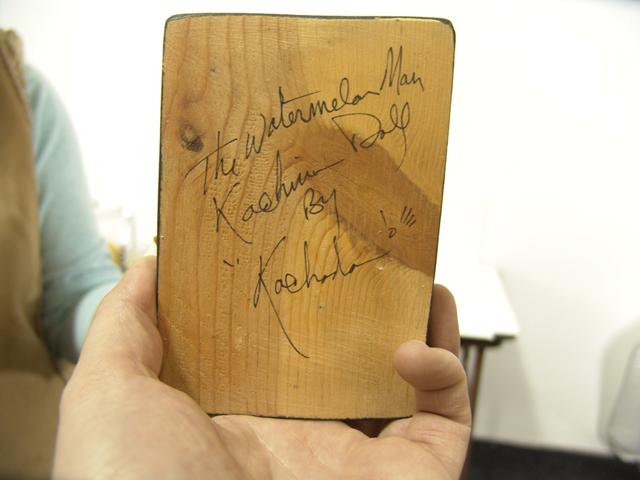 The Watermelon Man
Kachina Doll
By
"Kachada!"